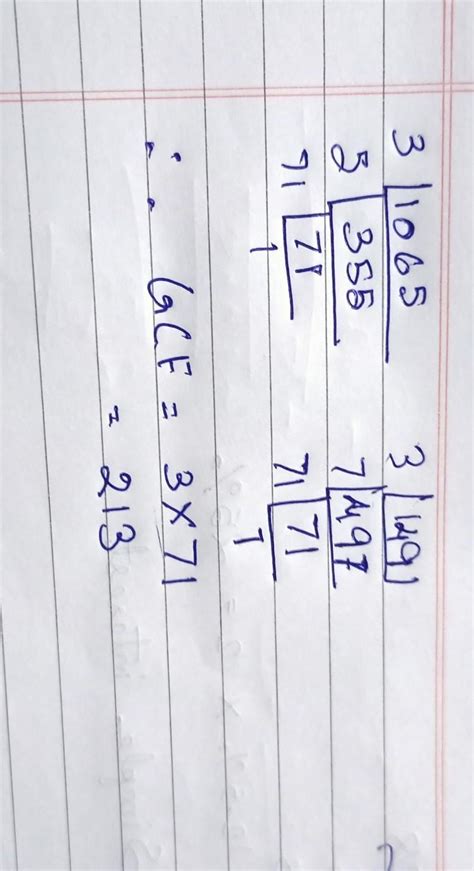 3 | 1065 3 | 1491
5 | 355 7 | 497
71 | 71 71 | 71
1 1
∴ GCF = 3 × 71
= 213